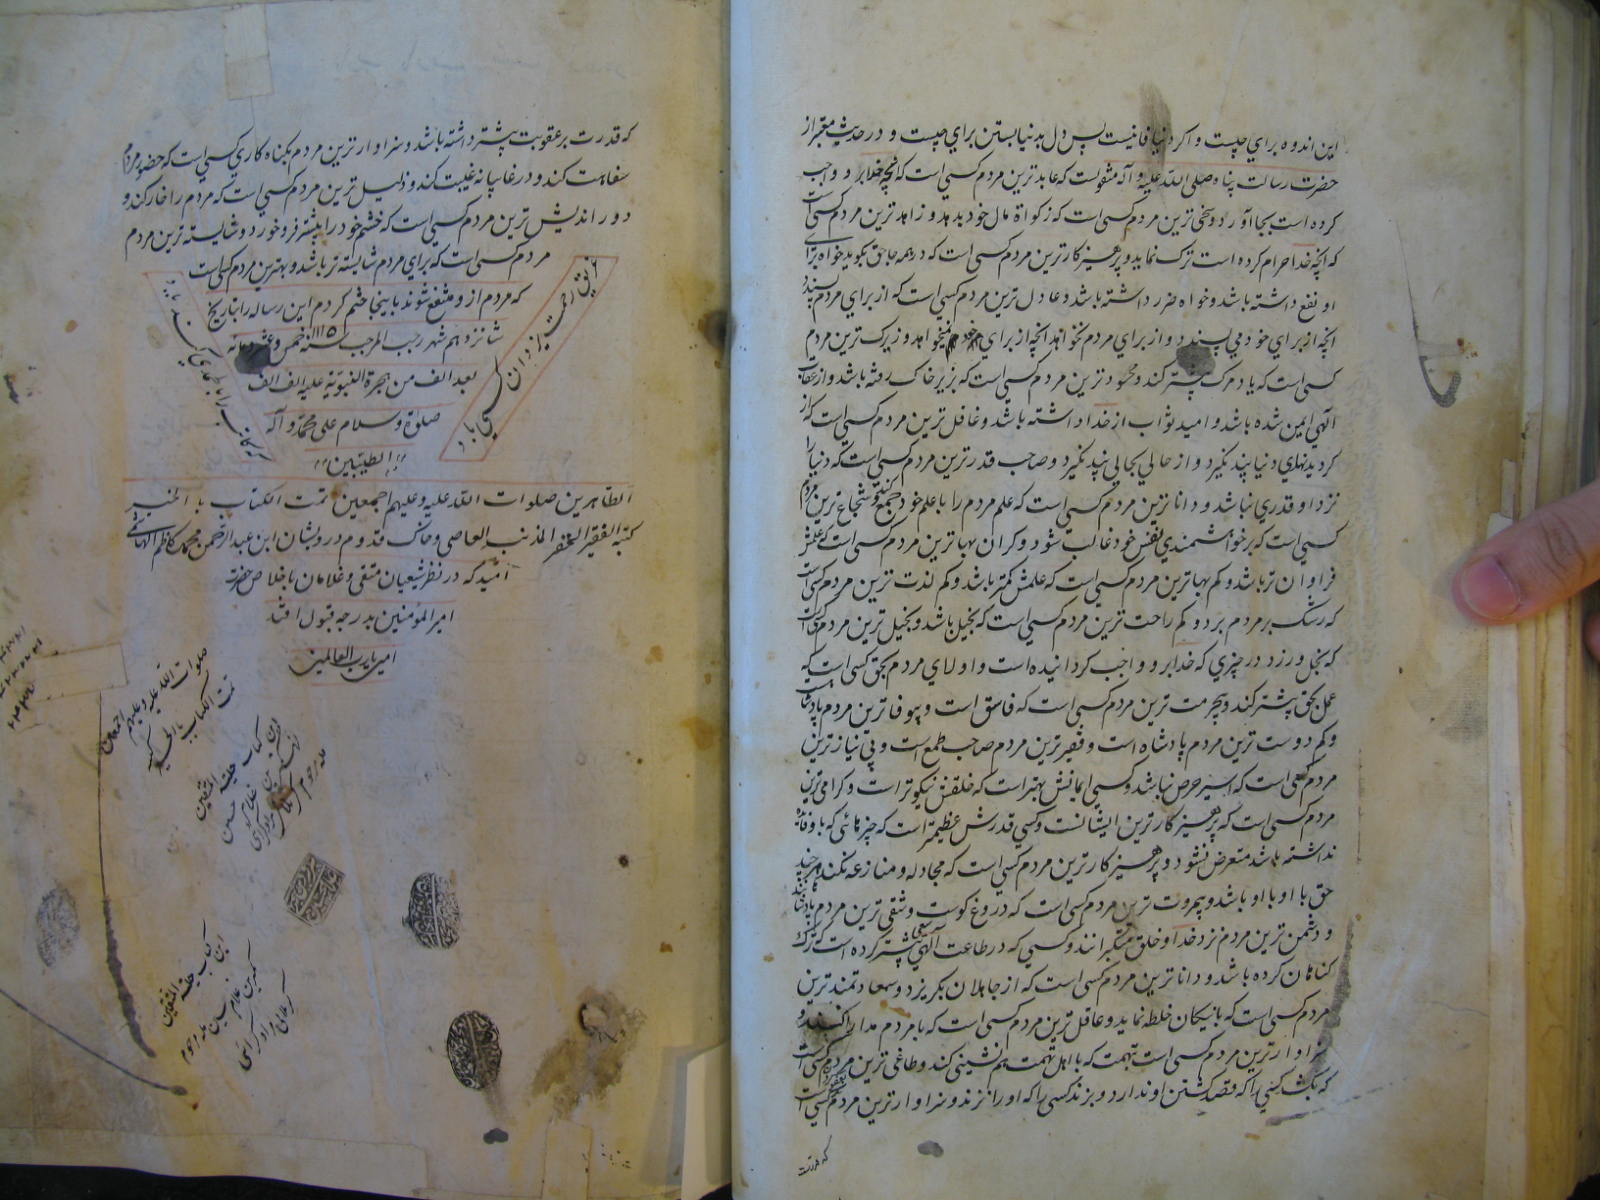 این اندوه برای چیست و اگر دنیا فانیست پس دل بدنیا بستن برای چیست و در حدیث معتبر از
حضرت رسالت پناه صلی الله علیه و آله منقولست که عابد ترین مردم کسی است که آنچه خدا بر او واجب
کرده است بجا آورد و سخی ترین مردم کسی است که زکواة مال خود بدهد و زاهد ترین مردم کسی است
که آنچه خدا حرام کرده است ترک نماید و پرهیز کار ترین مردم کسی است که در همه جا حق بگوید خواه برای
او نفع داشته باشد و خواه ضرر داشته باشد و عادل ترین مردم کسی است که از برای مردم پسندد
آنچه از برای خود می پسندد و از برای مردم نخواهد آنچه از برای خود نمیخواهد و زیرک ترین مردم
کسی است که یاد مرگ بیشتر کند و محسود ترین مردم کسی است که بزیر خاک رفته باشد و از عقاب
الهی ایمن شده باشد و امید ثواب از خدا داشته باشد و غافل ترین مردم کسی است که از
کردیدنهای دنیا پند نگیرد و از حالی بحالی پند نگیرد و صاحب قدر ترین مردم کسی است که دنیا را
نزد او قدری نباشد و دانا ترین مردم کسی است که علم مردم را با علم خود جمع کند و شجاع ترین مردم
کسی است که بر خواهشمندی نفس خود غالب شود و کران بها ترین مردم کسی است که علمش
فراوان تر باشد و کم بها ترین مردم کسی است که علمش کمتر باشد و کم لذت ترین مردم کسی است
که رشک بر مردم برد و کم راحت ترین مردم کسی است که بخیل باشد و بخیل ترین مردم کسی است
که بخل ورزد در چیزی که خدا بر او واجب کردانیده است و اولای مردم بحق کسی است که
عمل بحق بیشتر کند و بیحرمت ترین مردم کسی است که فاسق است و بیوفا ترین مردم پادشاهانست
و کم دوست ترین مردم پادشاه است و فقیر ترین مردم صاحب طمع است و بی نیاز ترین
مردم کسی است که اسیر حرص نباشد و کسی ایمانش بهتر است که خلقش نیکوتر است و کرامی ترین
مردم کسی است که پرهیز کار ترین ایشانست و کسی قدرش عظیمتر است که چیزهائی که باو فایده
نداشته باشد متعرض نشود و پرهیز کار ترین مردم کسی است که مجادله و منازعه نکند هر چند
حق با او باشد و بیمروت ترین مردم کسی است که دروغ کوست و شقی ترین مردم پادشاهانند
و دشمن ترین مردم نزد خدا و خلق متکبرانند و کسی که در طاعت الهی سعی بیشتر کرده است که ترک
کناهان کرده باشد و دانا ترین مردم کسی است که از جاهلان بگریزد و سعادتمند ترین
مردم کسی است که با نیکان خلطه نماید و عاقل ترین مردم کسی است که با مردم مدارا کند و
سزاوار ترین مردم کسی است بتهمت که با اهل تهمت هم نشینی کند و طاغی ترین مردم کسی است
که بکشد کسی را که قصد کشتن او ندارد و بزند کسی را که او را نزند و سزاوار ترین مردم بعفو کردن کسی است
که قدرت
که قدرت بر عقوبت بیشتر داشته باشد و سزاوار ترین مردم بکناه کاری کسی است که حضور مردم
سفاهت کند و در غایبانه غیبت کند و ذلیل ترین مردم کسی است که مردم را خار کند و
دور اندیش ترین مردم کسی است که خشم خود را بیشتر فرو خورد و شایسته ترین مردم
مردم کسی است که برای مردم شایسته تر باشد و بهترین مردم کسی است
که مردم از او منتفع شوند باینجا ختم کردم این رساله را بتاریخ
شانزدهم شهر رجب المرجب سنه ۱۱۱۵ خمس و عشر و مائه
بعد الف من هجرة النبویة علیه الف الف
صلوة و سلام علی محمد و آله
الطیبین
غریق رحمت یزدان کسی باد
که کاتب را بالحمدی کند یاد
الطاهرین صلوات الله علیه و علیهم اجمعین تمت الکتاب بالخیر
کتبه الفقیر الحقیر المذنب العاصی و خاک قدوم درویشان ابن عبد الرحمن محمد کاظم
امید که در نظر شیعیان متقی و غلامان با خلاص حضرت
امیر المؤمنین بدرجه قبول افتد
امین یا رب العالمین
صلوات الله علیه و علیهم اجمعین
تمت الکتاب بالخیر
این کتاب حلیة المتقین
این کتاب حلیة المتقین